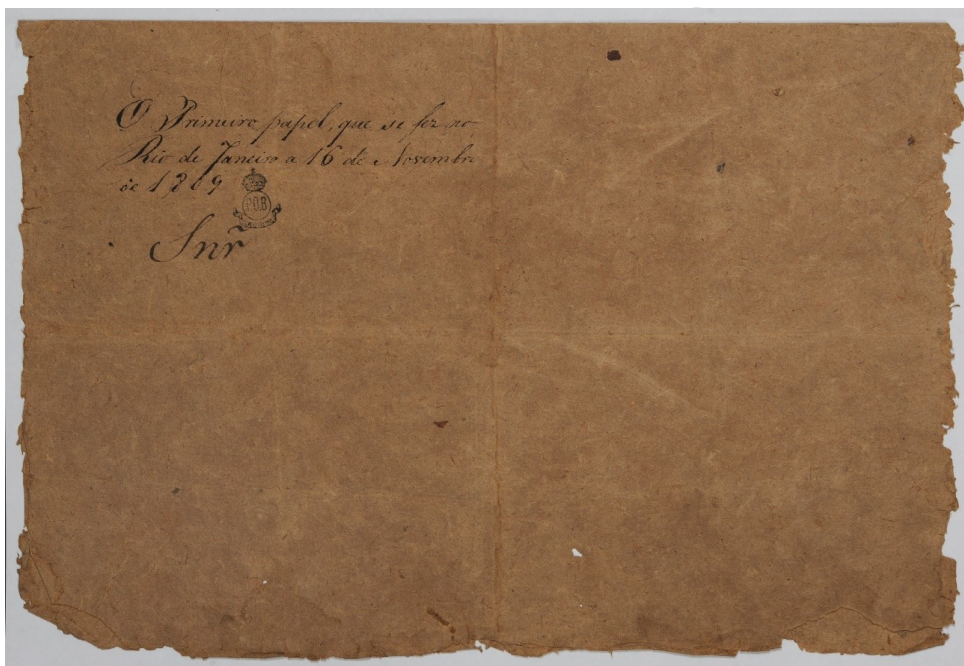 O Primeiro papel, que se fez no
Rio de Janeiro a 16 de Novembro
de 1809
P.O.B
Snr̃